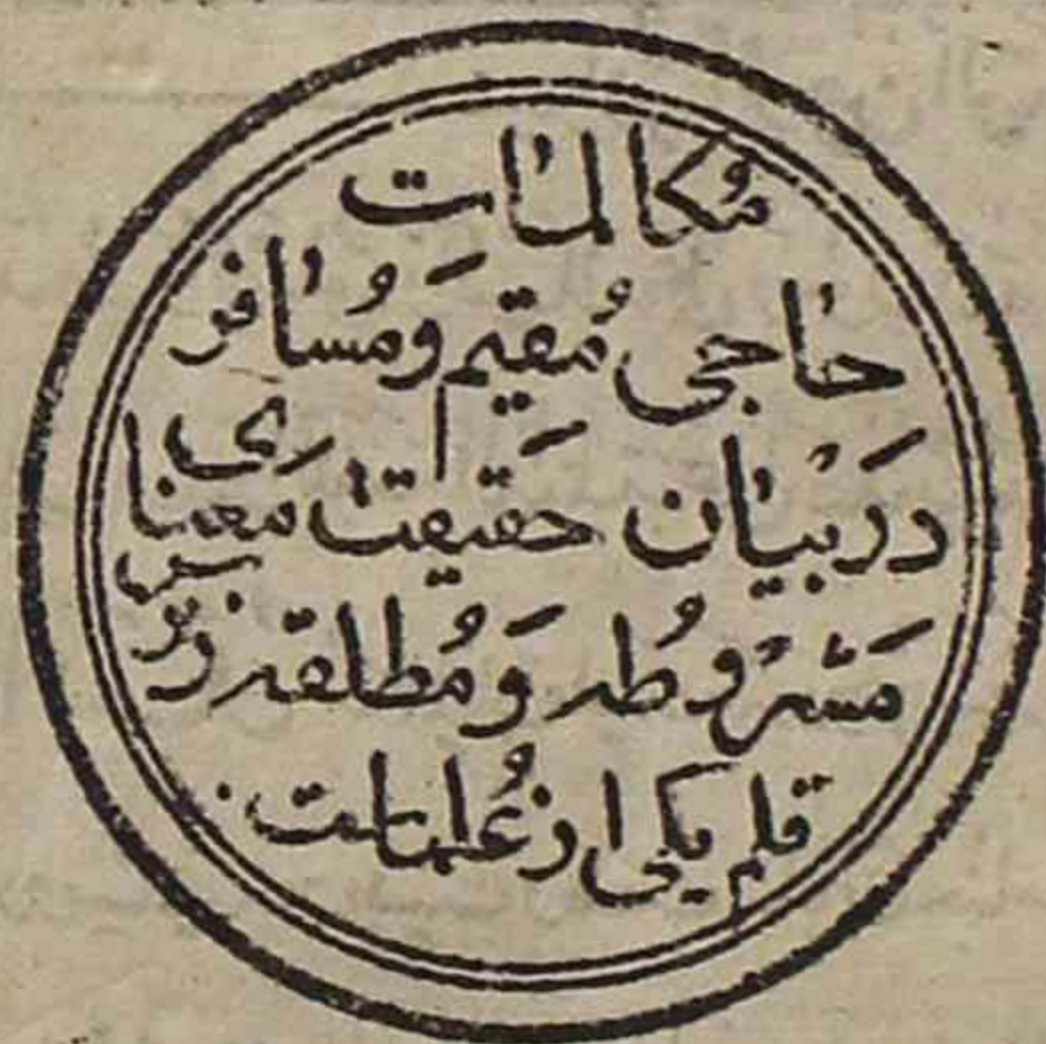 مُکالمات
حاجی مُقیم وَمُسافر
دَربیان حَقیقت معنای
مَشروطه وَمُطلقه بزیر
قلم یکی از عُلماست.